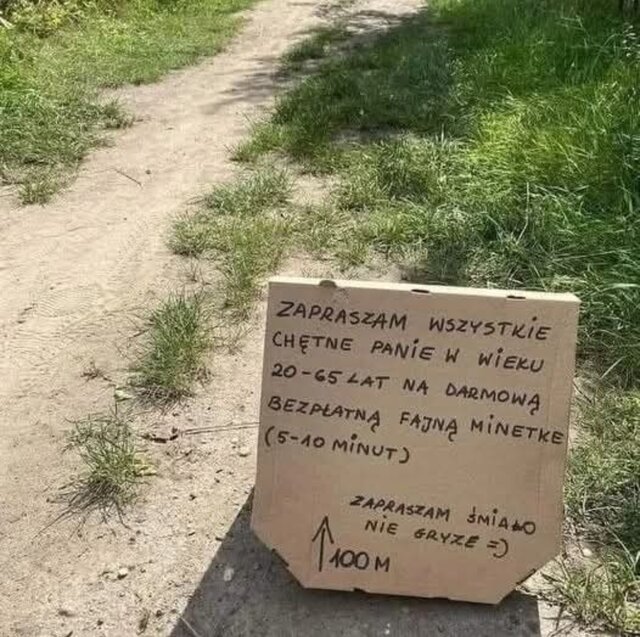 ZAPRASZAM WSZYSTKIE
CHĘTNE PANIE W WIEKU
20-65 LAT NA DARMOWĄ
BEZPŁATNĄ FAJNĄ MINETKE
(5-10 MINUT)
ZAPRASZAM ŚMIAŁO
NIE GRYZE =)
↑100M